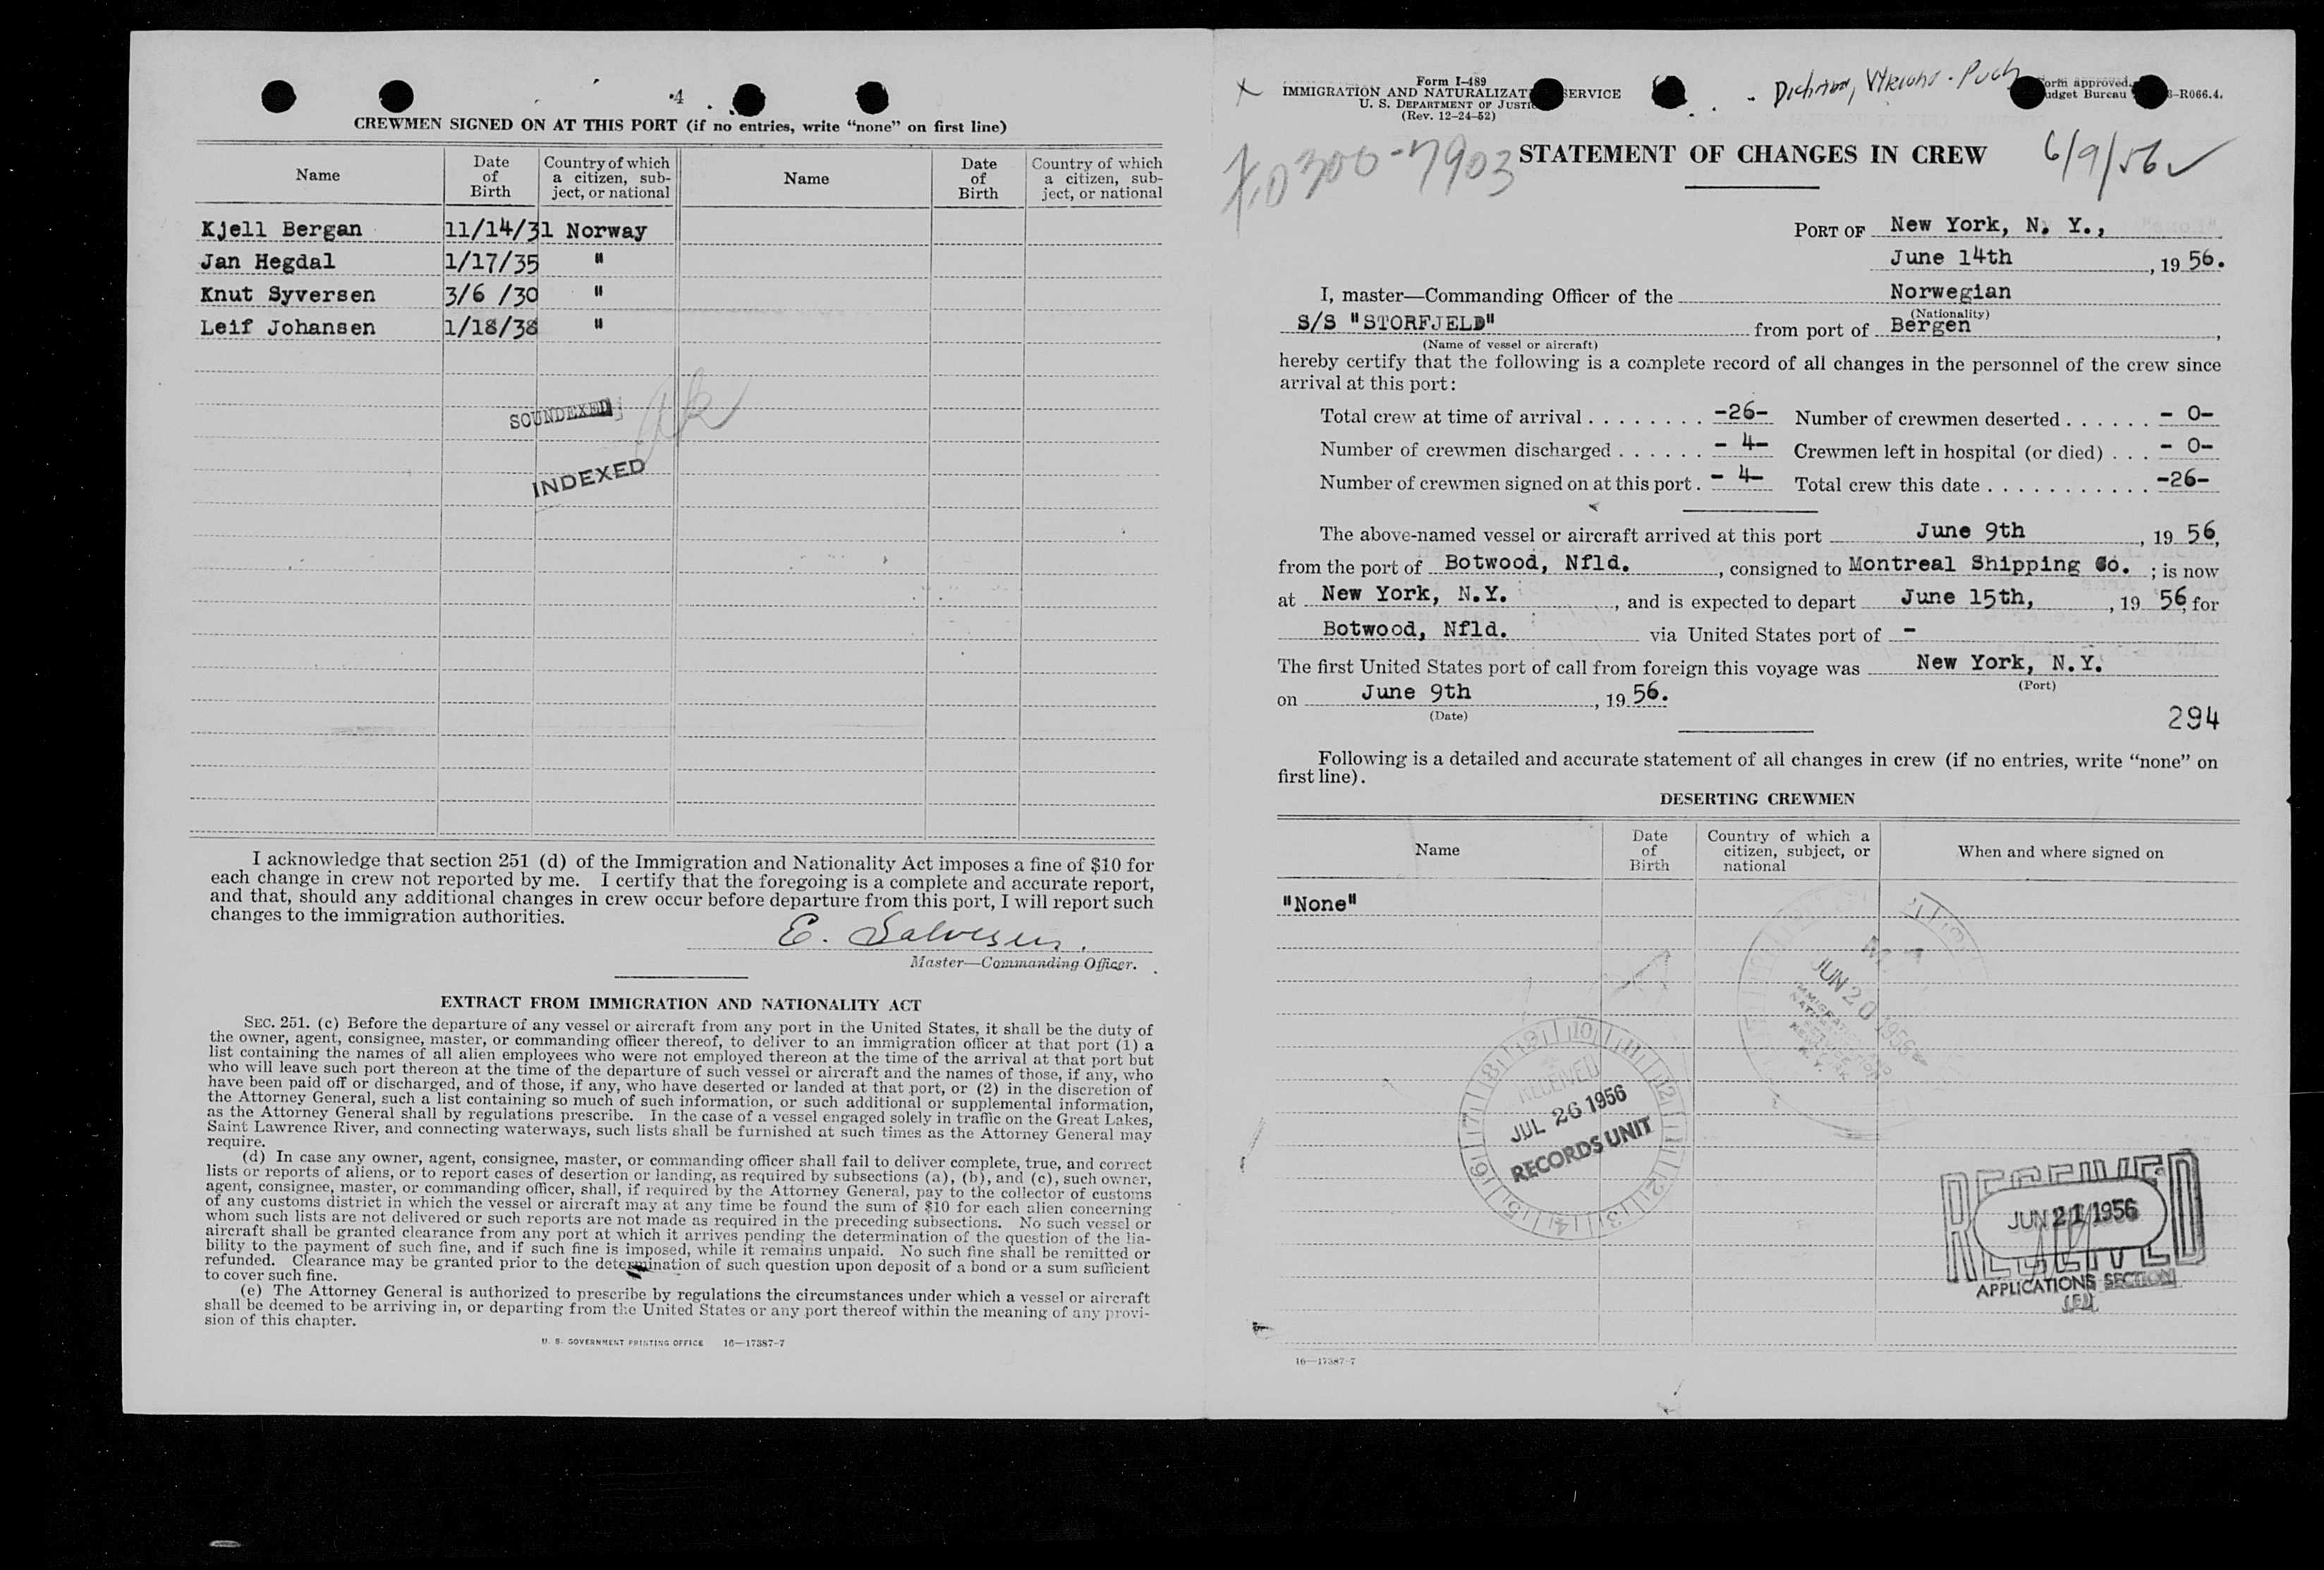 4
CREWMEN SIGNED ON AT THIS PORT (if no entries, write “none” on first line)
Name Date of Birth Country of which a citizen, subject, or national Name Date of Birth Country of which a citizen, subject, or national
Kjell Bergan 11/14/31 Norway
Jan Hegdal 1/17/35 "
Knut Syversen 3/6 /30 "
Leif Johansen 1/18/38 "
SOUNDEXED
INDEXED
I acknowledge that section 251 (d) of the Immigration and Nationality Act imposes a fine of $10 for
each change in crew not reported by me. I certify that the foregoing is a complete and accurate report,
and that, should any additional changes in crew occur before departure from this port, I will report such
changes to the immigration authorities.
E. Salvesen.
Master—Commanding Officer.
EXTRACT FROM IMMIGRATION AND NATIONALITY ACT
SEC. 251. (c) Before the departure of any vessel or aircraft from any port in the United States, it shall be the duty of
the owner, agent, consignee, master, or commanding officer thereof, to deliver to an immigration officer at that port (1) a
list containing the names of all alien employees who were not employed thereon at the time of the arrival at that port but
who will leave such port thereon at the time of the departure of such vessel or aircraft and the names of those, if any, who
have been paid off or discharged, and of those, if any, who have deserted or landed at that port, or (2) in the discretion of
the Attorney General, such a list containing so much of such information, or such additional or supplemental information,
as the Attorney General shall by regulations prescribe. In the case of a vessel engaged solely in traffic on the Great Lakes,
Saint Lawrence River, and connecting waterways, such lists shall be furnished at such times as the Attorney General may
require.
(d) In case any owner, agent, consignee, master, or commanding officer shall fail to deliver complete, true, and correct
lists or reports of aliens, or to report cases of desertion or landing, as required by subsections (a), (b), and (c), such owner,
agent, consignee, master, or commanding officer, shall, if required by the Attorney General, pay to the collector of customs
of any customs district in which the vessel or aircraft may at any time be found the sum of $10 for each alien concerning
whom such lists are not delivered or such reports are not made as required in the preceding subsections. No such vessel or
aircraft shall be granted clearance from any port at which it arrives pending the determination of the question of the lia-
bility to the payment of such fine, and if such fine is imposed, while it remains unpaid. No such fine shall be remitted or
refunded. Clearance may be granted prior to the determination of such question upon deposit of a bond or a sum sufficient
to cover such fine.
(e) The Attorney General is authorized to prescribe by regulations the circumstances under which a vessel or aircraft
shall be deemed to be arriving in, or departing from the United States or any port thereof within the meaning of any provi-
sion of this chapter.
U. S. GOVERNMENT PRINTING OFFICE 16—17387-7
Form I-489
IMMIGRATION AND NATURALIZAT SERVICE
U. S. DEPARTMENT OF JUSTI
(Rev. 12-24-52)
orm approved.
udget Bureau -R066.4.
0300-7903
STATEMENT OF CHANGES IN CREW
6/9/56
PORT OF New York, N. Y.,
June 14th, 19 56.
I, master—Commanding Officer of the Norwegian
(Nationality)
S/S "STORFJELD" from port of Bergen,
(Name of vessel or aircraft)
hereby certify that the following is a complete record of all changes in the personnel of the crew since
arrival at this port:
Total crew at time of arrival . . . . . . . . -26- Number of crewmen deserted . . . . . . - 0-
Number of crewmen discharged . . . . . . - 4- Crewmen left in hospital (or died) . . . - 0-
Number of crewmen signed on at this port . - 4- Total crew this date . . . . . . . . . . . -26-
The above-named vessel or aircraft arrived at this port June 9th, 19 56,
from the port of Botwood, Nfld., consigned to Montreal Shipping Co. ; is now
at New York, N.Y., and is expected to depart June 15th,, 19 56, for
Botwood, Nfld. via United States port of -
The first United States port of call from foreign this voyage was New York, N.Y.
(Port)
on June 9th, 19 56.
(Date)
294
Following is a detailed and accurate statement of all changes in crew (if no entries, write “none” on
first line).
DESERTING CREWMEN
Name Date of Birth Country of which a citizen, subject, or national When and where signed on
"None"
JUN 20 1956
RECEIVED
JUL 26 1956
RECORDS UNIT
RECEIVED
JUN 21 1956
APPLICATIONS SECTION
16—17387-7